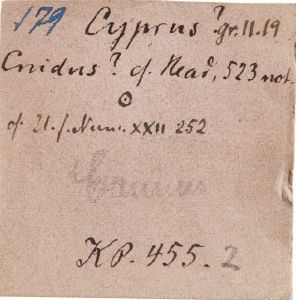 179 Cyprus? gr. 11.19
Cnidus? cf. Head, 523 not.
⊙
cf. Z. f. Num. XXII 252
Caunus
KP. 455. 2